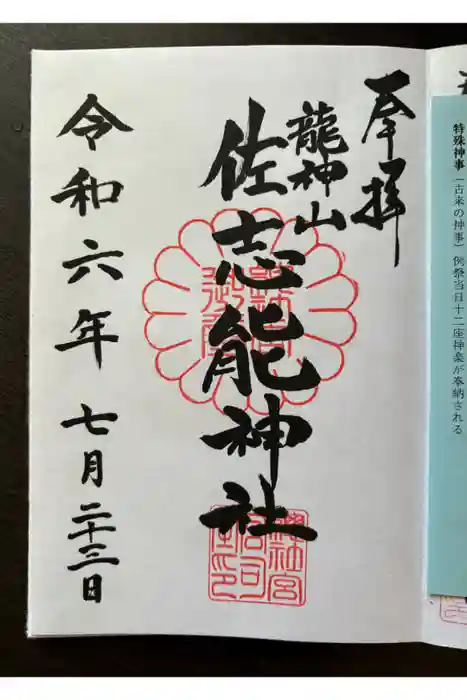 特殊神事（古来の神事）例祭当日十二座神楽が奉納される
奉拝
龍神山
佐志能神社
令和六年 七月二十三日